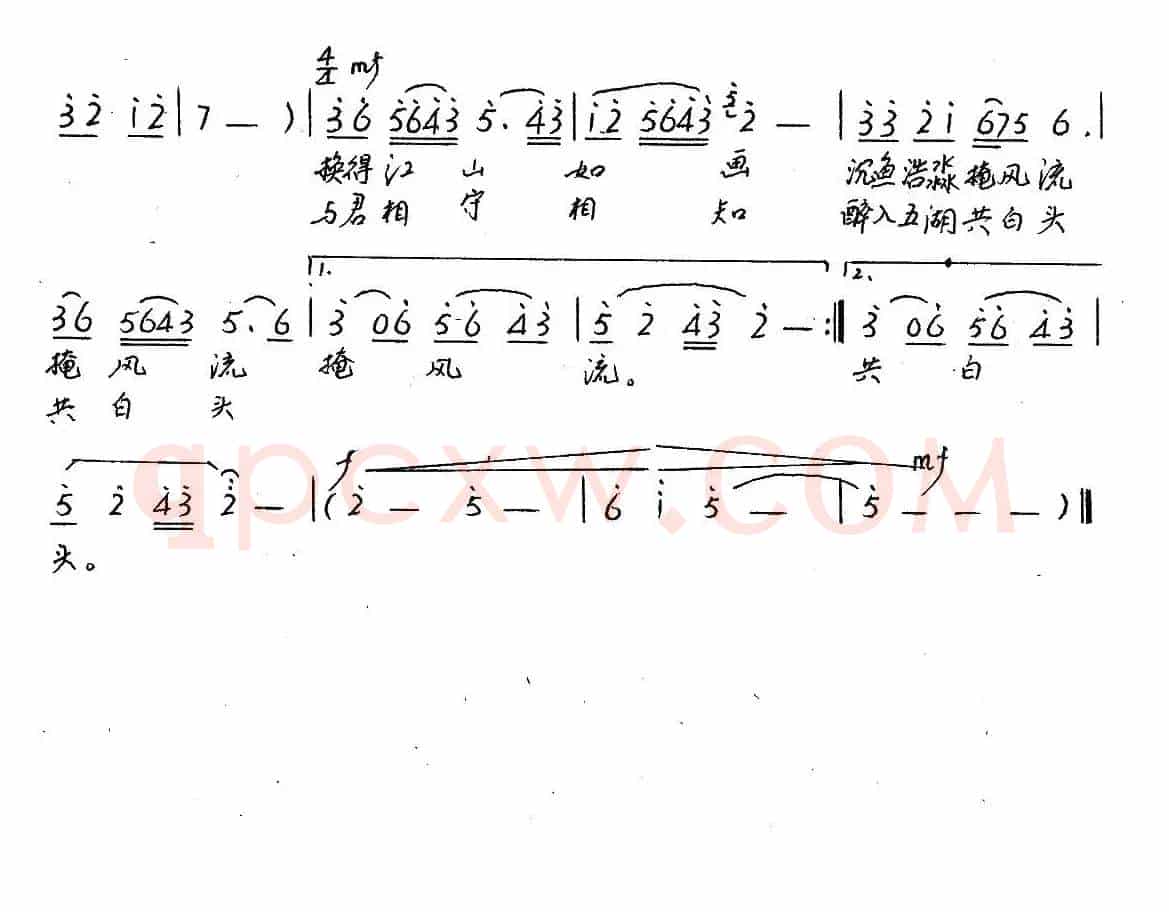 4/4 mf
3 2 1 2 | 7 — ) | 3 6 5643 5. 43 | 12 5643 5 2 — | 33 21 675 6. |
换得江山如画 沉鱼浩淼掩风流
与君相守相知 醉入五湖共白头
1. 2.
36 5643 5. 6 | 3 06 5·6 43 | 5 2 43 2 — :‖ 3 06 56 43 |
掩风流 掩风流。 共白
共白头
f mf
5 2 43 2 — | (2 — 5 — | 6 1 5 — | 5 — — — ) ‖
头。
qpcxw.com